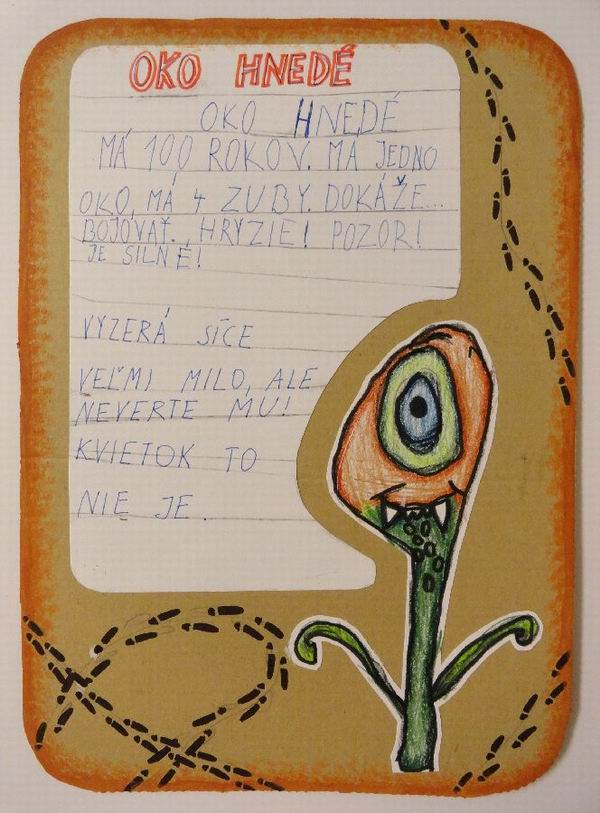 OKO HNEDÉ
OKO HNEDÉ
MÁ 100 ROKOV. MÁ JEDNO
OKO, MÁ 4 ZUBY. DOKÁŽE...
BOJOVAŤ. HRYZIE! POZOR!
JE SILNÉ!
VYZERÁ SÍCE
VEĽMI MILO, ALE
NEVERTE MU!
KVIETOK TO
NIE JE.